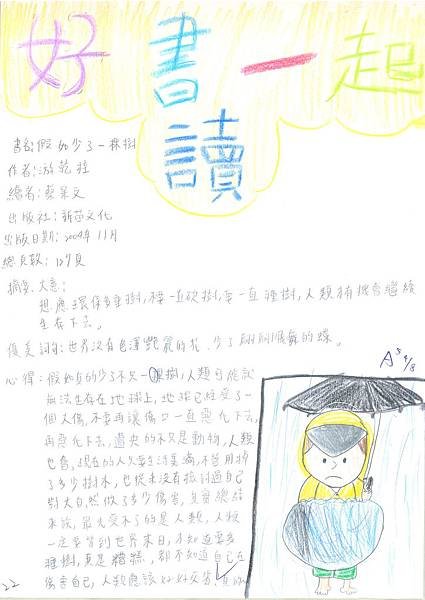 好書一起
讀
書名:假如少了一棵樹
作者:游乾桂
繪者:蔡杲文
出版社:新苗文化
出版日期:2004年11月
總頁數:127頁
摘要、大意:
想應環保多種樹,不要一直砍樹,要一直種樹,人類有機會繼續
生存下去。
優美詞句:世界沒有色澤艷麗的花,少了翩翩飛舞的蝶。
心得:假如真的少了不只一棵樹,人類可能就
無法生存在地球上,地球已經受了一
個大傷,不要再讓傷口一直惡化下去,
再惡化下去,遭央的不只是動物,人類
也會,現在的人只要生活美滿,不管用掉
了多少樹木,也從來沒有檢討過自己
對大自然做了多少傷害,
來說,最大受不了的是人類,人類
一定要等到世界末日,才知道要多
種樹,真是糟糕,都不知道自己在
傷害自己,人類應該好好反省
22
A 5 4/8